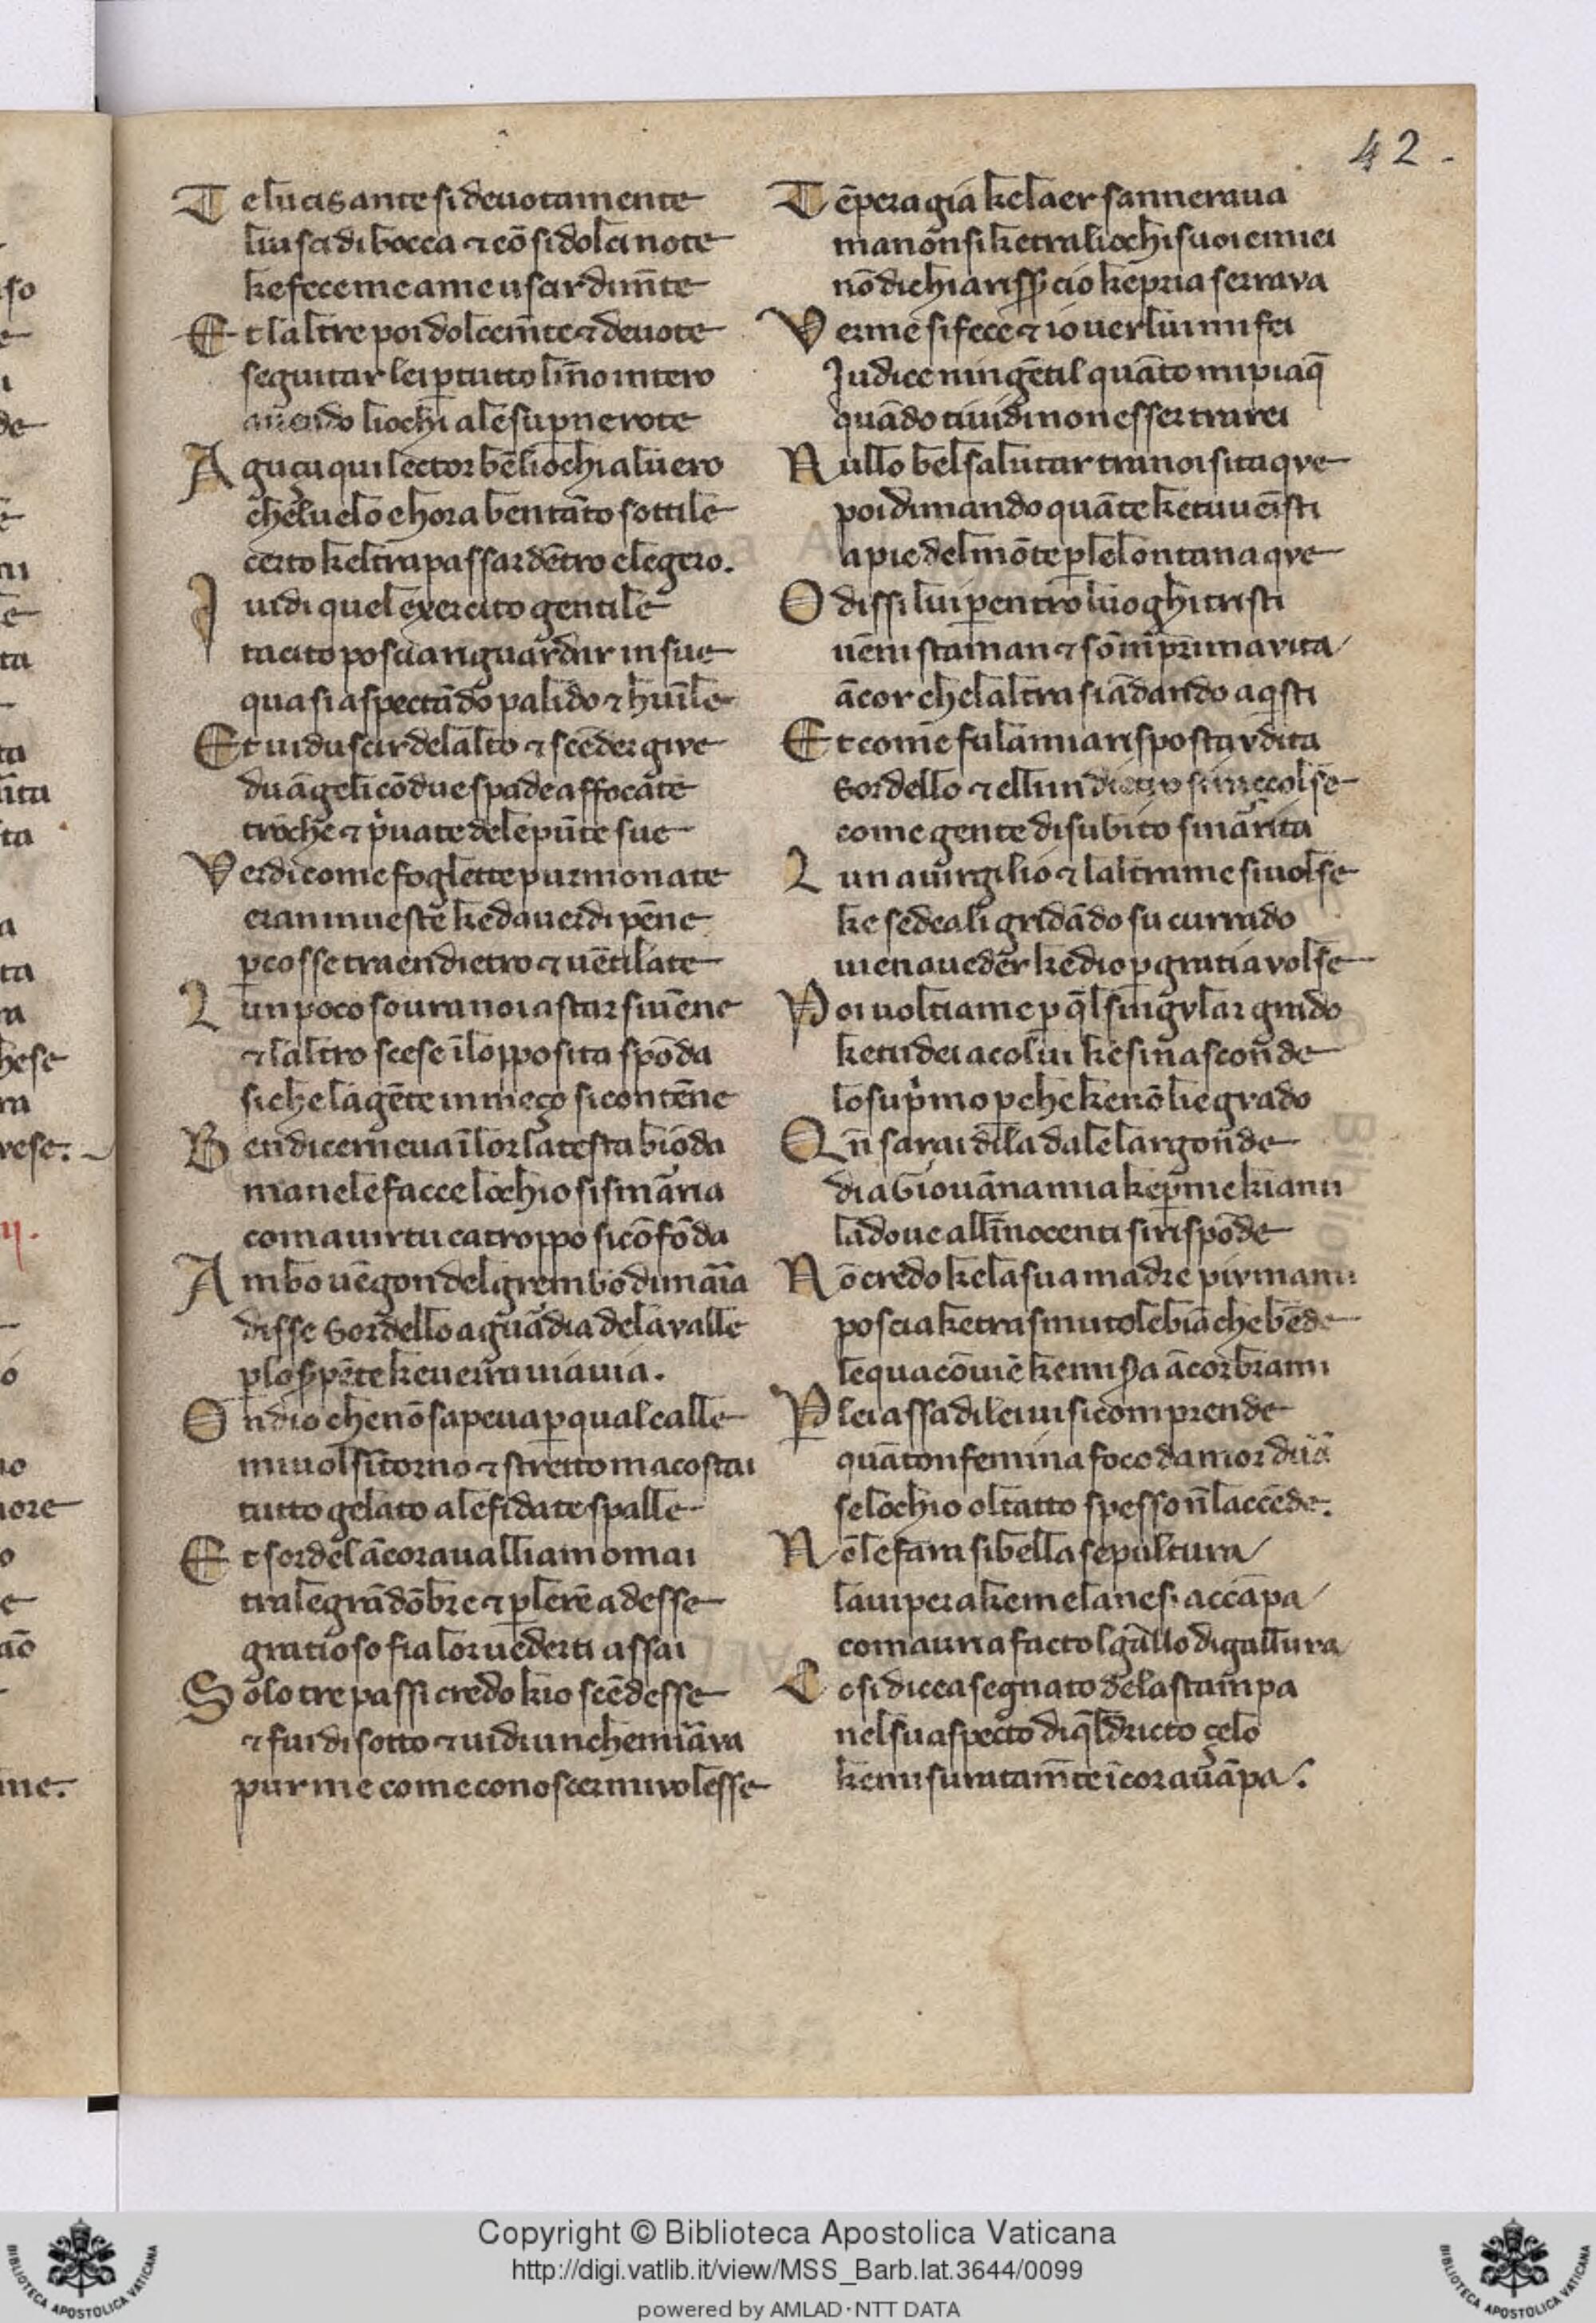 42.
Te lucis ante si deuotamente
lui sci di bocca ⁊ cō si dolci note
ke fece me a me uscir dim̄te
Et laltre poi dolcem̄te ⁊ deuote
seguitar lei p tutto lin̄o intero
auendo li ochi ale sup̄ne rote
Aguça qui lector bē li ochi al uero
chel uelo e hora ben tāto sottile
certo kel trapassar dētro e legero.
I uidi quel exercito gentile
tacito poscia riguardar in sue
quasi aspectādo palido ⁊ huīle
Et uidi uscir del alto ⁊ scēder giue
du āgeli cō due spade affocate
trōche ⁊ p'uate dele pūte sue
Verdi come foglette pur mo nate
eran in ueste ke da uerdi pēne
pcosse traen dietro ⁊ uētilate
Lun poco soura noi a star si uēne
⁊ laltro scese ī lopposita spōda
si che la gēte in meço si contēne
Ben dicerneua ī lor la testa biōda
ma nele facce lochio si smaria
coma uirtu ca troppo si cōfōda
Ambo uēgon del grembo di maīa
disse Sordello a guādia dela valle
p lo s̄pēte ke uerra uia uia.
Ondio che nō sapeua p qual calle
mi uolsi ītorno ⁊ stretto macostai
tutto gelato ale fidate spalle
Et sordel ācora aualliam omai
tra le grādōbre ⁊ plerē ad esse
gratioso fia lor uederti assai
Solo tre passi credo kio scēdesse
⁊ fui di sotto ⁊ uidi un che mirava
pur me come conoscer mi volesse
Tēpera gia ke laer sannerava
ma non si ke tra li ochi suoi e miei
nō dichiarisse cio ke pria serrava
Ver me si fece ⁊ io uer lui mi fei
Judice nin gētil quāto mi piaq̄
quādo ti uidi non esser tra rei
Nullo bel salutar tra noi si taqve
poi dimando quāte ke tu uenisti
a pie del mōte p le lontana aqve
O dissi lui p entro luoghi tristi
uēni staman ⁊ sō in prima vita
ācor che laltra si ādando aq̄sti
Et come fu la mia risposta vdita
Sordello ⁊ elli in dietro si racolse
come gente di subito smarita
Lun a uirgilio ⁊ laltra me si uolse
ke sedea li gridādo su currado
uien a ueder ke dio p gratia volse
Poi uolti a me p q̄l singvlar grado
ke tu dei a colui ke si nasconde
lo sup'mo pche ke nō lie gvado
Qn̄ sarai dila dale largonde
di a Giouāna mia ke p me kiami
la doue allinocenti si rispōde
Nō credo ke la sua madre piv mami
poscia ke trasmuto le biāche bēde
le qua cōuiē ke mis̄a ācor brami
P lei assa di leiui si comprende
quāto in femina foco damor dura
se lochio ol tatto spesso nōl accēde.
Nō le fara si bella sepultura
la uipera ke melanesi accāpa
coma uria facto l gallo di gallura
Cosi dicea segnato dela stampa
nel su aspecto di q̄l dricto çelo
ke misuratam̄te ī cor auāpa.
Copyright © Biblioteca Apostolica Vaticana
http://digi.vatlib.it/view/MSS_Barb.lat.3644/0099
powered by AMLAD·NTT DATA